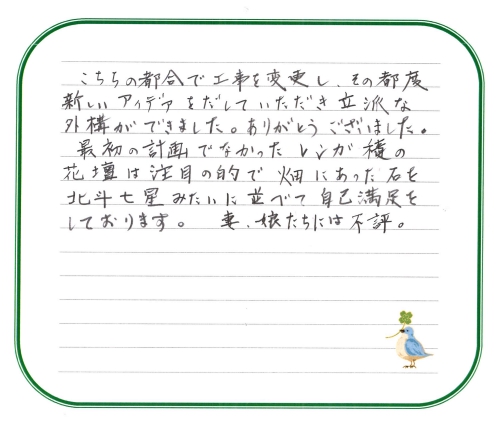 こちらの都合で工事を変更し、その都度
新しいアイデアをだしていただき立派な
外構ができました。ありがとうございました。
最初の計画でなかったレンガ積の
花壇は注目の的で畑にあった石を
北斗七星みたいに並べて自己満足を
しております。 妻、娘たちには不評。